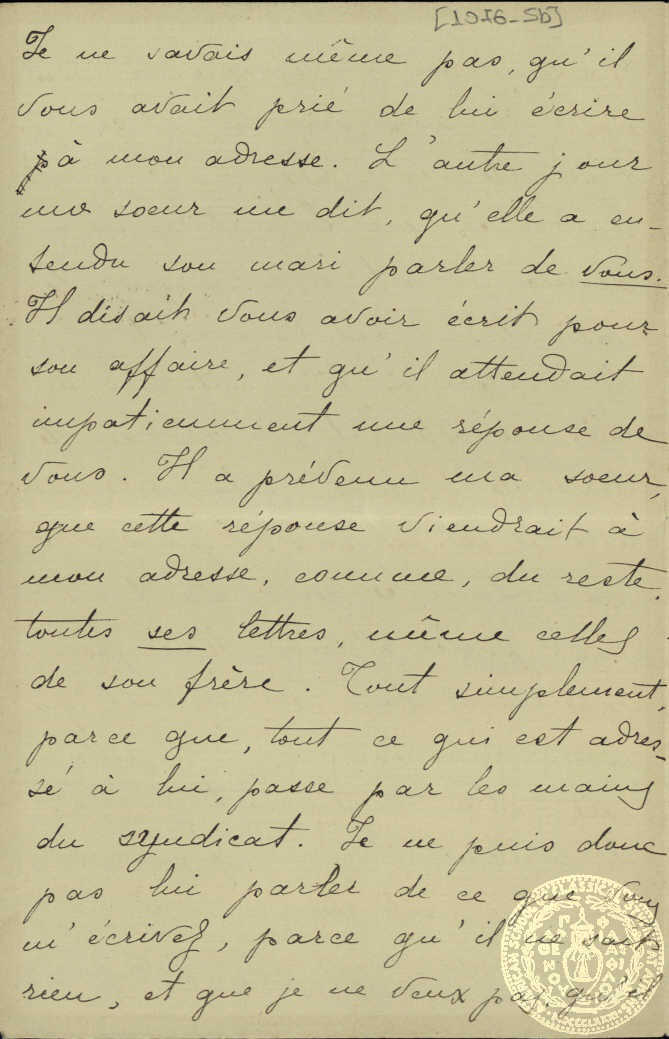 Je ne savais même pas, qu'il
vous avait prié de lui écrire
à mon adresse. L'autre jour
ma soeur me dit, qu'elle a en-
tendu son mari parler de vous.
Il disait vous avoir écrit pour
son affaire, et qu'il attendait
impatiemment une réponse de
vous. Il a prévenu ma soeur,
que cette réponse viendrait à
mon adresse, comme, du reste,
toutes ses lettres, même celles
de son frère. Tout simplement,
parce que, tout ce qui est adres-
sé à lui, passe par les mains
du syndicat. Je ne puis donc
pas lui parler de ce que vous
m'écrivez, parce qu'il ne sait
rien, et que je ne veux pas, qu'il